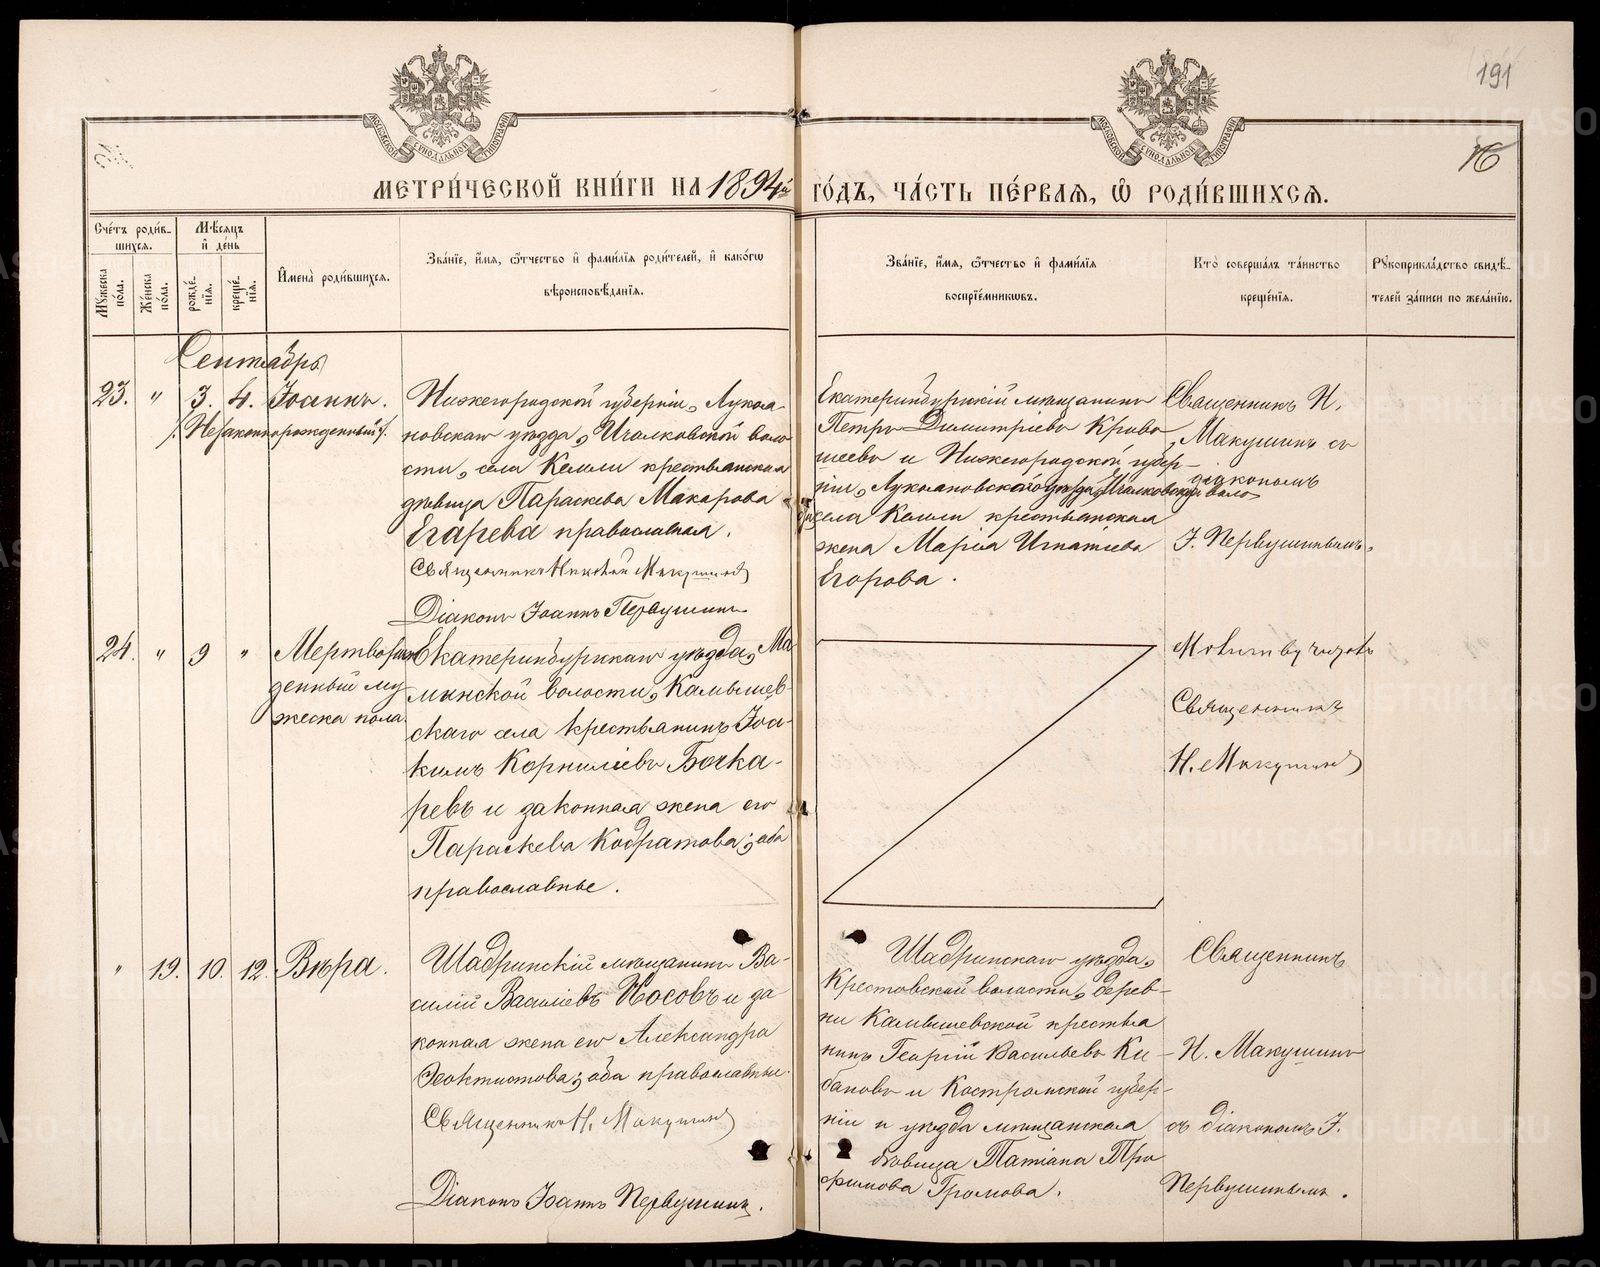 191
16
МОСКОВСКОЙ СѴНОДАЛЬНОЙ ТИПОГРАФІИ
МОСКОВСКОЙ СѴНОДАЛЬНОЙ ТИПОГРАФІИ
МЕТРИ́ЧЕСКОЙ КНИ́ГИ НА 1894й ГО́ДЪ, ЧА́СТЬ ПЕ́РВАЯ, Ѽ РОДИ́ВШИХСЯ.
Сче́тъ роди́в-
шихся.
Му́жеска по́ла.
Же́нска по́ла.
Мѣ́сяцъ и҆ де́нь
рожде́-
нія.
креще́-
нія.
И҆мена̀ роди́вшихся.
Зва́нїе, и҆́мя, ѻ҆́тчество и҆ фами́лїя роди́телей, и҆ како́гѡ
вѣроисповѣ́данїя.
Зва́нїе, и҆́мя, ѻ҆́тчество и҆ фами́лїя
воспрїе́мникѡвъ.
Кто̀ соверша́лъ та́инство
креще́нїя.
Рукоприкла́дство свидѣ́-
телей за́писи по жела́нїю.
Сентябрь
23. " 3. 4. Іоаннъ.
/:Незаконнорожденный:/.
Нижегородской губерніи, Лукоя-
новскаго уѣзда, Ичалковской воло
сти, села Кемли крестьянская
дѣвица Параскева Макарова
Егарева православная.
Священникъ Николай Макушинъ
Діаконъ Іоаннъ Первушинъ
Екатеринбургскій мѣщанинъ
Петръ Димитріевъ Криво
шеевъ и Нижегородской губер-
ніи, Лукояновскаго уѣзда, Ичалковской воло
села Кемли крестьянская
жена Марія Игнатіева
Егорова.
Священникъ Н.
Макушинъ съ
діакономъ
І. Первушинымъ.
24. " 9 " Мертворож
денный му
жеска пола.
Екатеринбургскаго уѣзда, Ма
минской волости, Камышев-
скаго села крестьянинъ Іоа-
кимъ Корниліевъ Бочка-
ревъ и законная жена его
Параскева Кодратова; оба
православные.
Молитву читалъ
Священникъ
Н. Макушинъ
" 19. 10. 12. Вѣра.
Шадринскій мѣщанинъ Ва-
силій Василіевъ Носовъ и за
конная жена его Александра
Ѳеоктистова; оба православные.
Священникъ Н. Макушинъ
Діаконъ Іоаннъ Первушинъ.
Шадринскаго уѣзда,
Крестовской волости, дерев-
ни Камышевской крестья
нинъ Георгій Васильевъ Ки-
бановъ и Костромской губер-
ніи и уѣзда мѣщанская
дѣвица Татіана Тро
фимова Громова.
Священникъ
Н. Макушинъ
съ діакономъ І.
Первушинымъ.
METRIKI.GASO-URAL.RU